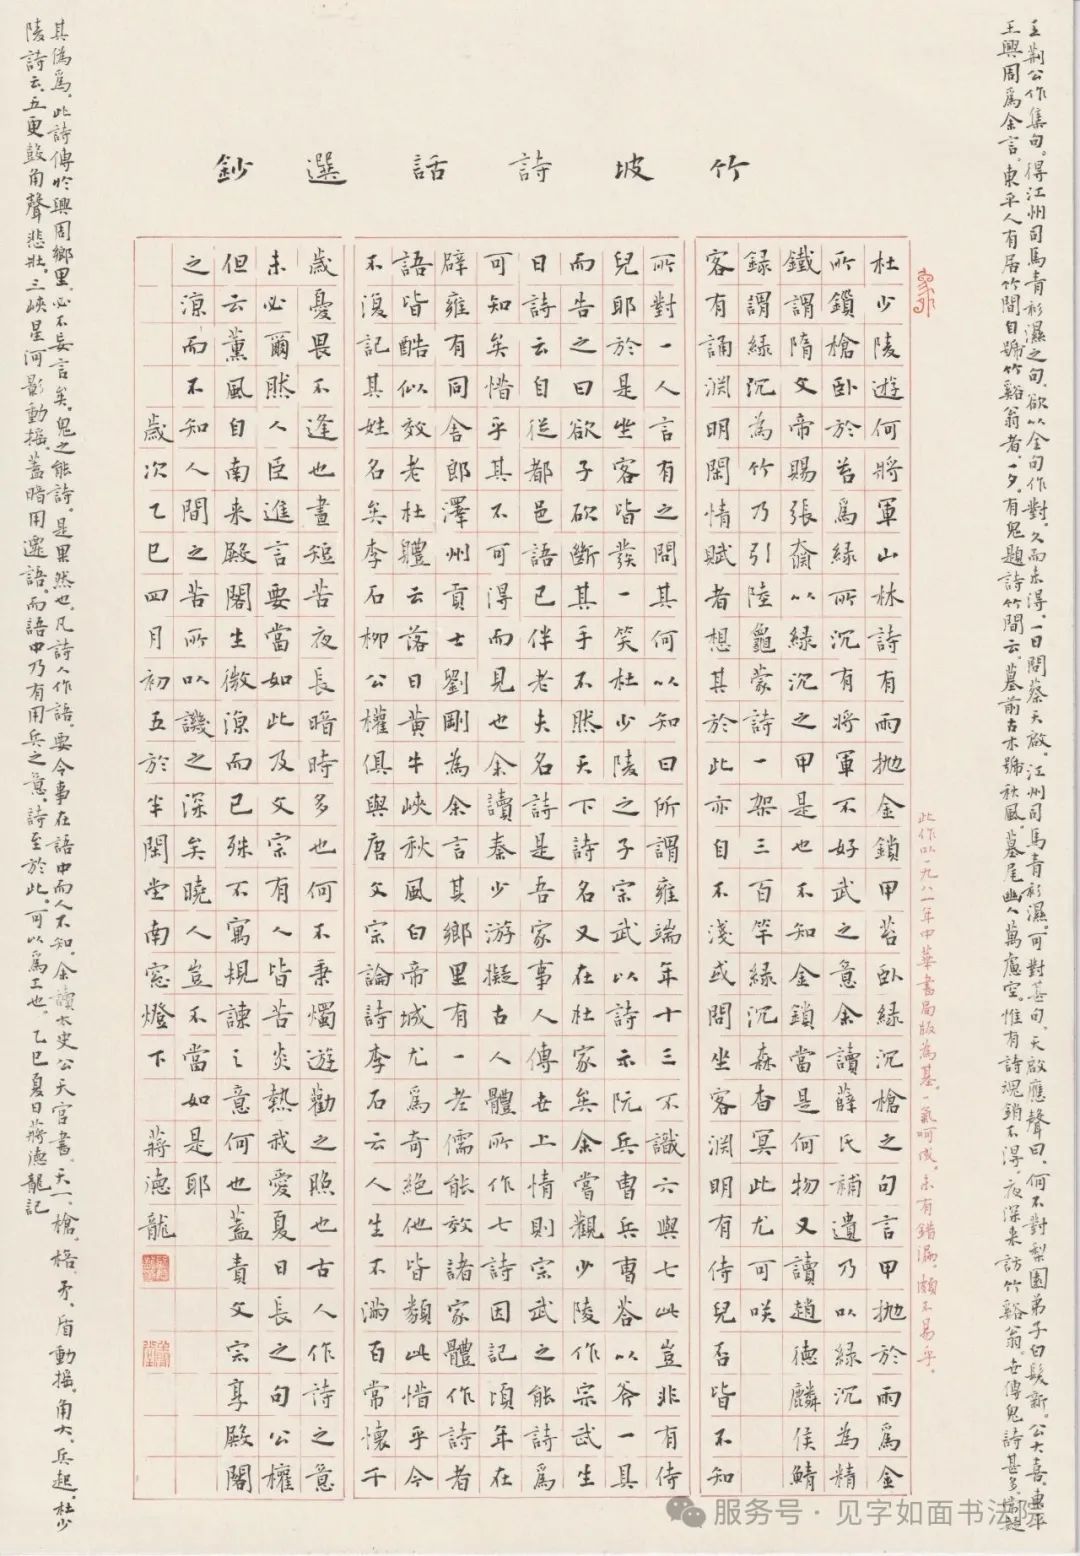 竹坡詩話選鈔
王荆公作集句。得江州司馬青衫濕之句。欲以全句作對。久而未得。一日問蔡天啟。江州司馬青衫濕。可對甚句。天啟應聲曰。何不對梨園弟子白髮新。公大喜。東平
王興周爲余言。東平人有居竹間自號竹谿翁者。一夕。有鬼題詩竹間云。墓前古木號秋風。墓尾幽人萬慮空。惟有詩魂銷不得。夜深来訪竹谿翁。世傳鬼詩甚多。常疑
杜少陵遊何將軍山林詩有雨抛金鎖甲苔卧緑沉槍之句言甲抛於雨爲金
所鎖槍卧於苔爲緑所沉有將軍不好武之意余讀薛氏補遺乃以緑沉為精
鐵謂隋文帝賜張奫以緑沉之甲是也不知金鎖當是何物又讀趙德麟侯鯖
録謂緑沉為竹乃引陸龜蒙詩一架三百竿緑沉森杳冥此尤可咲
客有誦淵明閑情賦者想其於此亦自不淺或問坐客淵明有侍兒否皆不知
所對一人言有之問其何以知曰所謂雍端年十三不識六與七此豈非有侍
兒耶於是坐客皆發一笑杜少陵之子宗武以詩示阮兵曹兵曹荅以斧一具
而告之曰欲子砍斷其手不然天下詩名又在杜家矣余嘗觀少陵作宗武生
日詩云自從都邑語已伴老夫名詩是吾家事人傳世上情則宗武之能詩爲
可知矣惜乎其不可得而見也余讀秦少游擬古人體所作七詩因記頃年在
辟雍有同舍郎澤州貢士劉剛為余言其鄉里有一老儒能效諸家體作詩者
語皆酷似效老杜體云落日黄牛峽秋風白帝城尤爲奇絶他皆類此惜乎今
不復記其姓名矣李石柳公權俱與唐文宗論詩李石云人生不滿百常懷千
歲憂畏不逢也晝短苦夜長暗時多也何不秉燭遊勸之照也古人作詩之意
未必爾然人臣進言要當如此及文宗有人皆苦炎熱我愛夏日長之句公權
但云薰風自南来殿閣生微涼而已殊不寓規諫之意何也蓋責文宗享殿閣
之涼而不知人間之苦所以譏之深矣曉人豈不當如是耶
歲次乙巳四月初五於半閑堂南窓燈下 蔣德龍
此作以一九八一年中華書局版為基。一氣呵成。未有錯漏。頗不易乎。
其僞爲。此詩傳於興周鄉里。必不妄言矣。鬼之能詩。是果然也。凡詩人作語。要令事在語中而人不知。余讀太史公天官書。天一、槍、棓、矛、盾動摇。角大。兵起。杜少
陵詩云。五更鼓角聲悲壯。三峽星河影動摇。蓋暗用遷語。而語中乃有用兵之意。詩至於此。可以爲工也。 乙巳夏日蔣德龍記
服务号 · 见字如面书法院